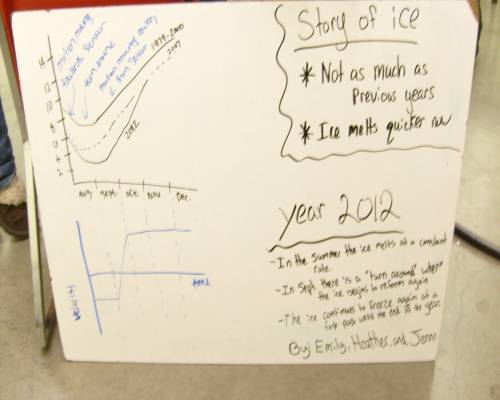 Story of ice
* Not as much as
Previous years
* Ice melts quicker now
motion moving
towards sensor
turn around
motion moving away
from sensor
1979-2000
2007
2012
14
12
10
8
6
4
2
Aug
Sept
Oct
Nov
Dec.
velocity
time
year 2012
- In the summer the ice melts at a constant
rate.
- In Sept there is a "turn around" where
the ice begins to reform again
- The ice continues to freeze again at a
fast pace until the end of the year.
By: Emily, Heather, and Jenn